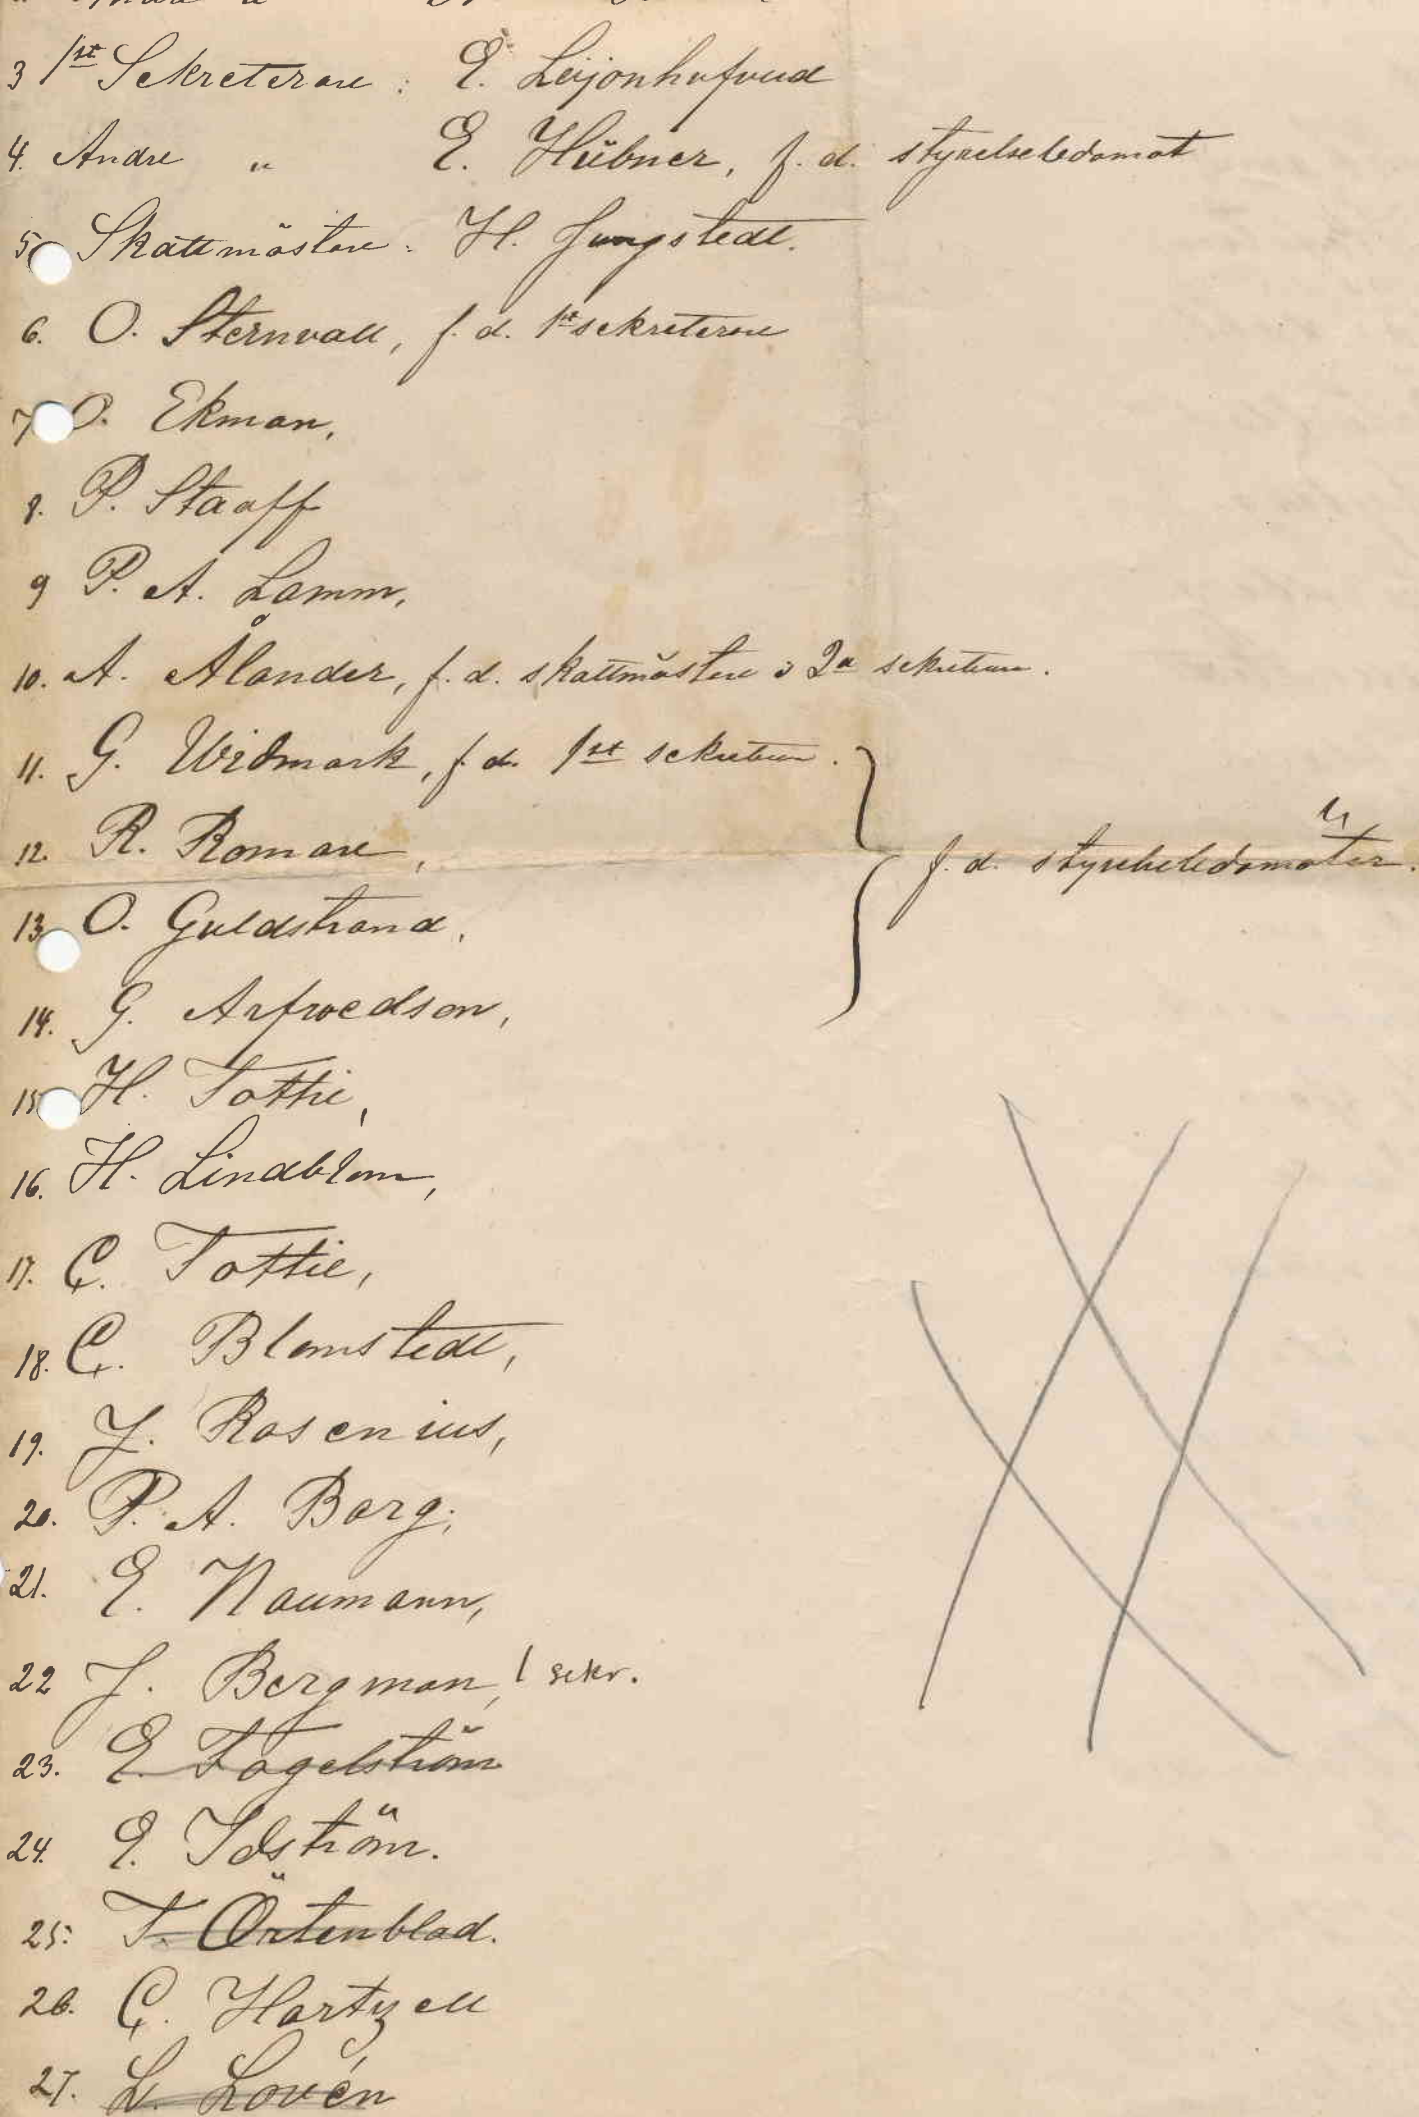 3 1st Sekreterare : E. Leijonhufvud
4. Andre " E. Hübner, f. d. styrelseledamot
5. Skattmästare : H. Ljungstedt.
6. O. Sternvall, f. d. 1st sekreterare
7 O. Ekman,
8. P. Staaff
9 P. A. Lamm,
10. A. Ålander, f. d. skattmästare o 2a sekreterare.
11. G. Widmark, f. d. 1st sekreterare.
12. R. Romare,
f. d. styrelseledamöter.
13. O. Guldstrand,
14. G. Arfwedson,
15 H. Tottie,
16. H. Lindblom,
17. C. Tottie,
18. C. Blomstedt,
19. J. Rosenius,
20. P. A. Borg,
21. E. Naumann,
22 J. Bergman, 1 sekr.
23. E. Fogelström
24. E. Idström.
25. T. Örtenblad.
26. C. Hartzell
27. L. Lovén